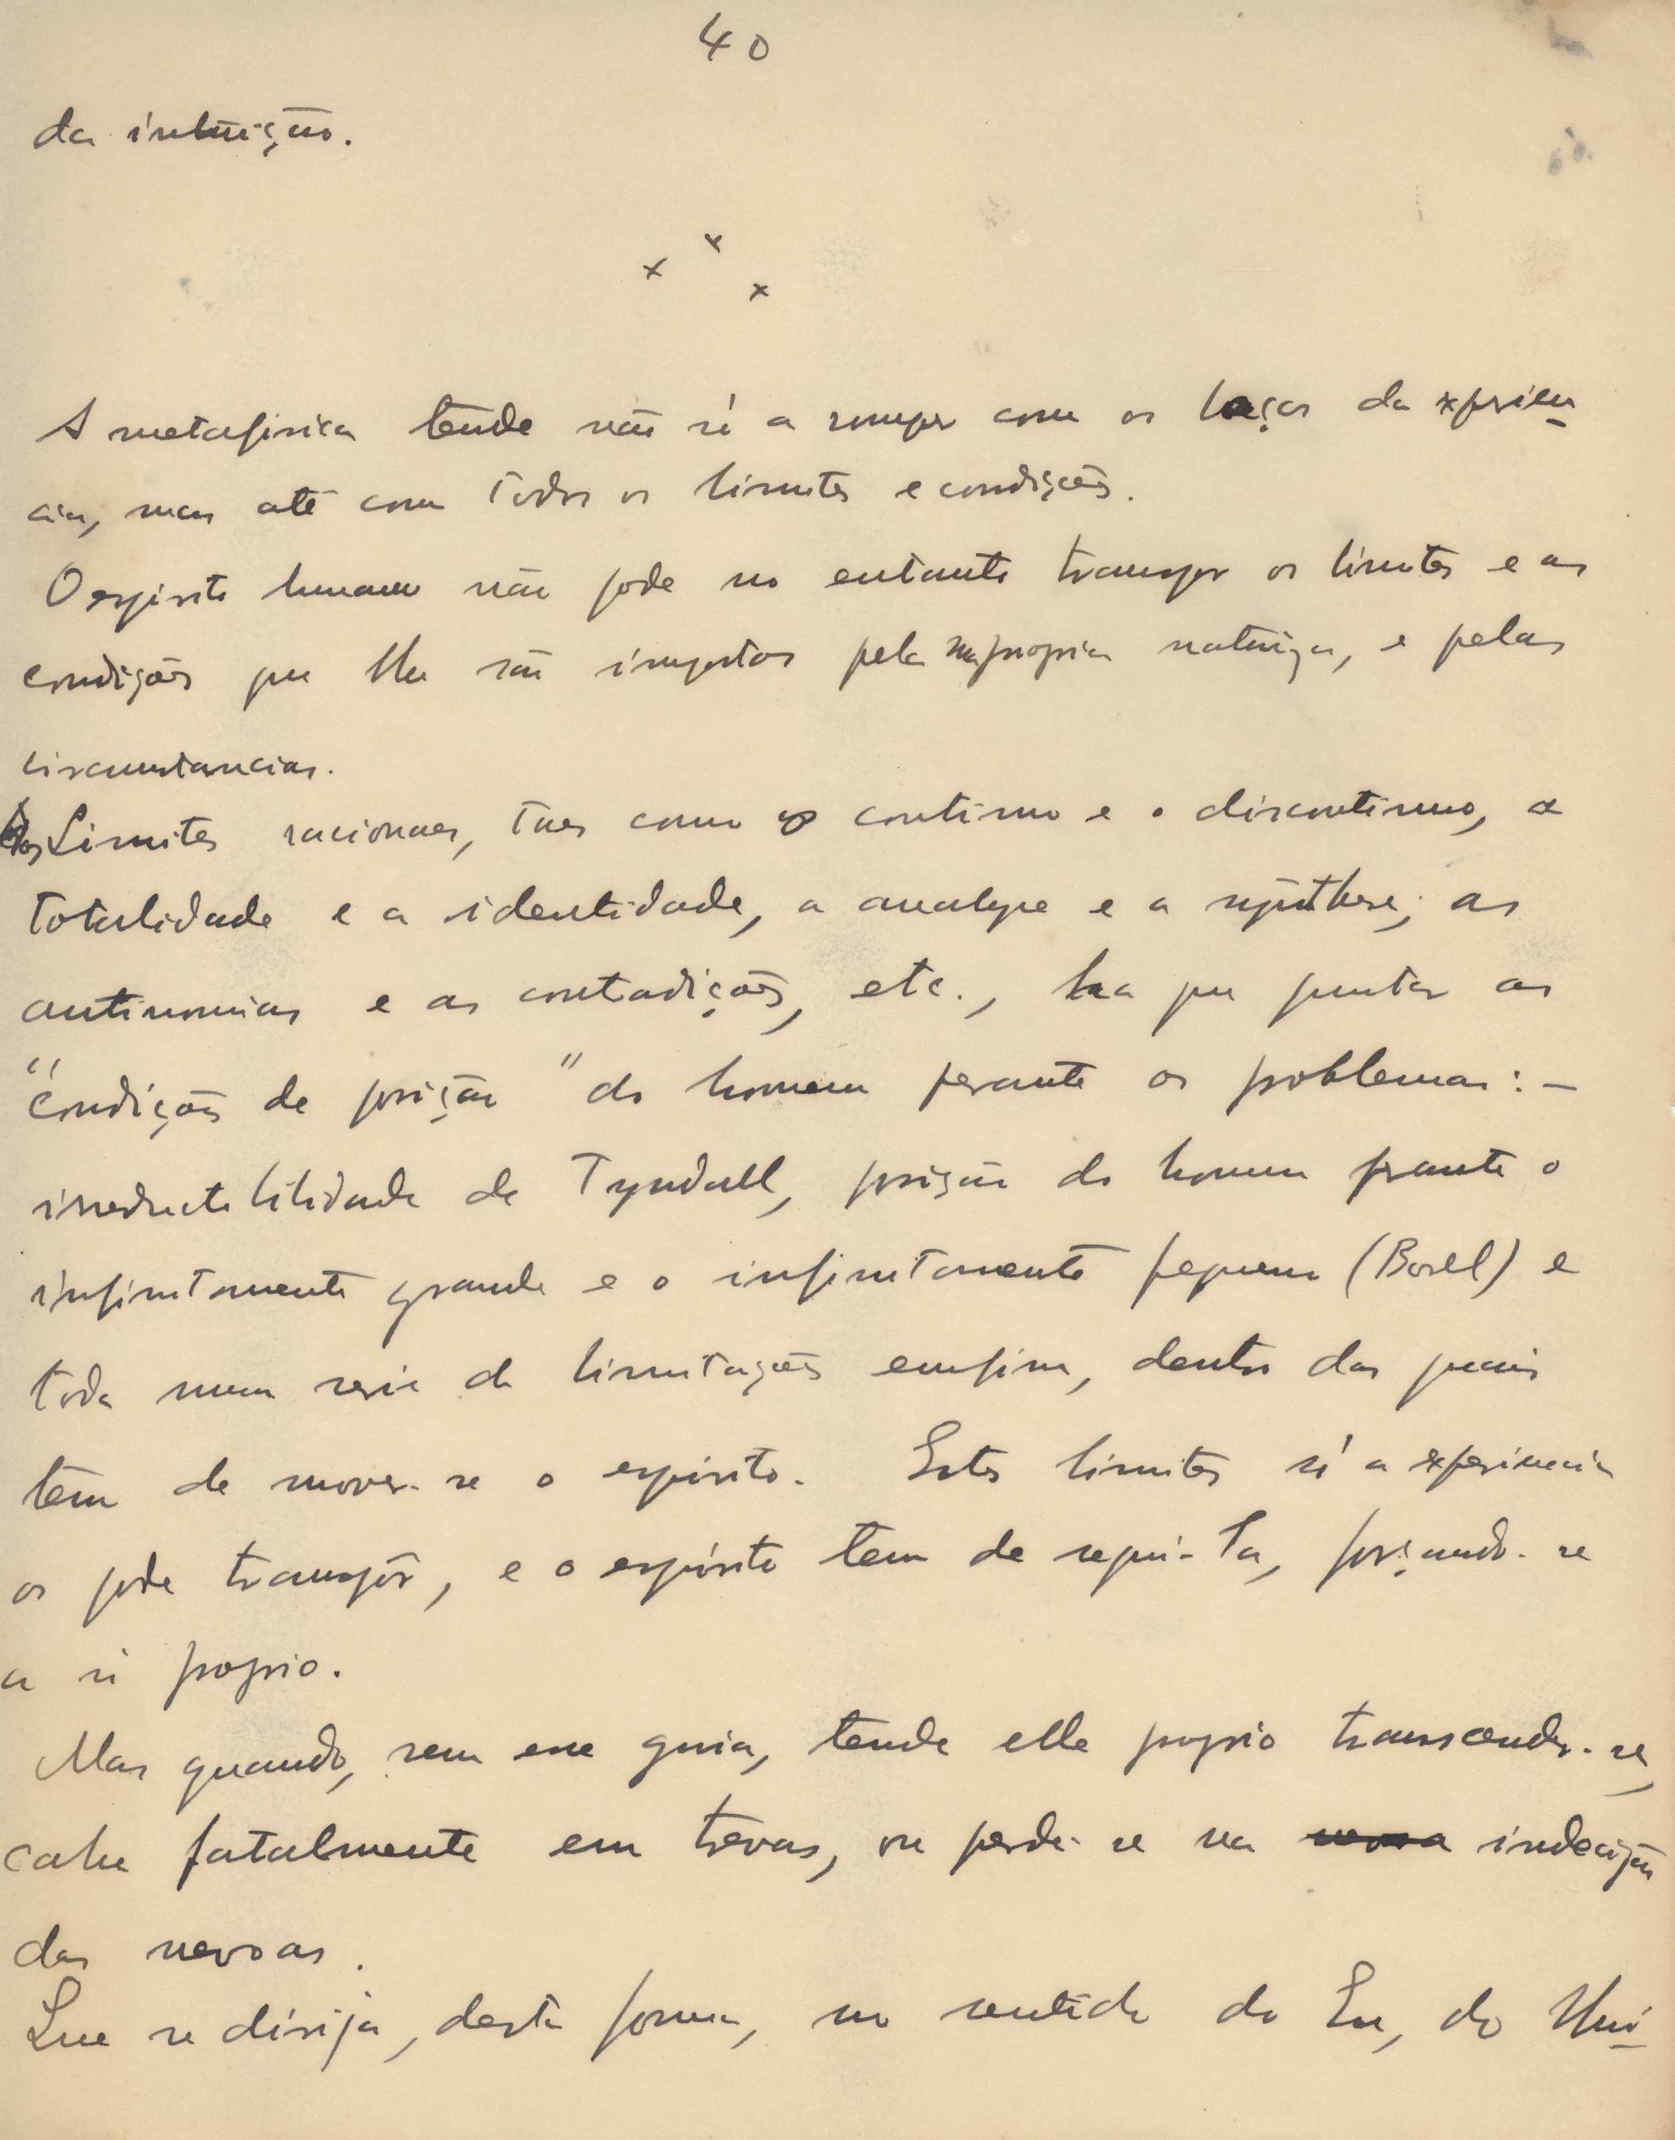 40
da intuição.
x x x
A metafisica tende não só a romper com os laços da experien-
cia, mas até com todos os limites e condições.
O espirito humano não pode no entanto transpor os limites e as
condições que lhe são impostas pela sua propria natureza, e pelas
circumstancias.
Aos Limites racionaes, taes como o continuo e o discontinuo, a
totalidade e a identidade, a analyse e a synthese; as
antinomias e as contradições, etc., ha que juntar as
"condições de posição" do homem perante os problemas: -
irreductibilidade de Tyndall, posição do homem perante o
infinitamente grande e o infinitamente pequeno (Borel) e
toda uma serie de limitações emfim, dentro das quais
tem de mover-se o espirito. Estes limites só a experiencia
os pode transpôr, e o espirito tem de segui-la, forçando-se
a si proprio.
Mas quando, sem esse guia, tende elle proprio transcender-se,
cahe fatalmente em trevas, ou perde-se na indecisão
das nevoas.
Que se dirija, desta forma, no sentido do Eu, do Uni-